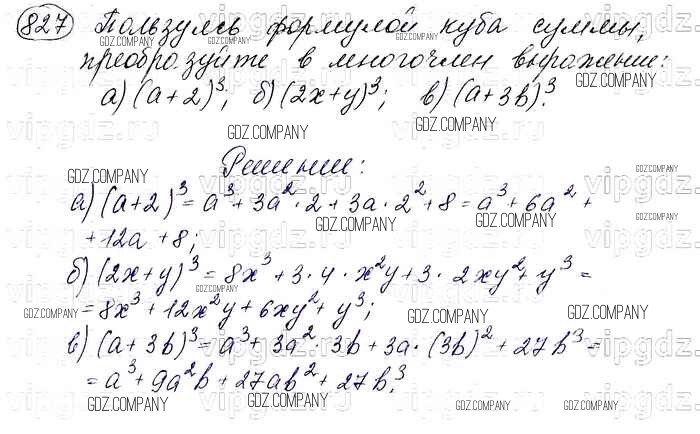 827 Пользуясь формулой куба суммы,
преобразуйте в многочлен выражение:
а) (a+2)³; б) (2x+y)³; в) (a+3b)³.
Решение:
а) (a+2)³ = a³ + 3a² · 2 + 3a · 2² + 8 = a³ + 6a² +
+ 12a + 8;
б) (2x+y)³ = 8x³ + 3 · 4 · x²y + 3 · 2xy² + y³ =
= 8x³ + 12x²y + 6xy² + y³;
в) (a + 3b)³ = a³ + 3a² · 3b + 3a · (3b)² + 27b³ =
= a³ + 9a²b + 27ab² + 27b³.
GDZ.COMPANY
vipgdz.ru